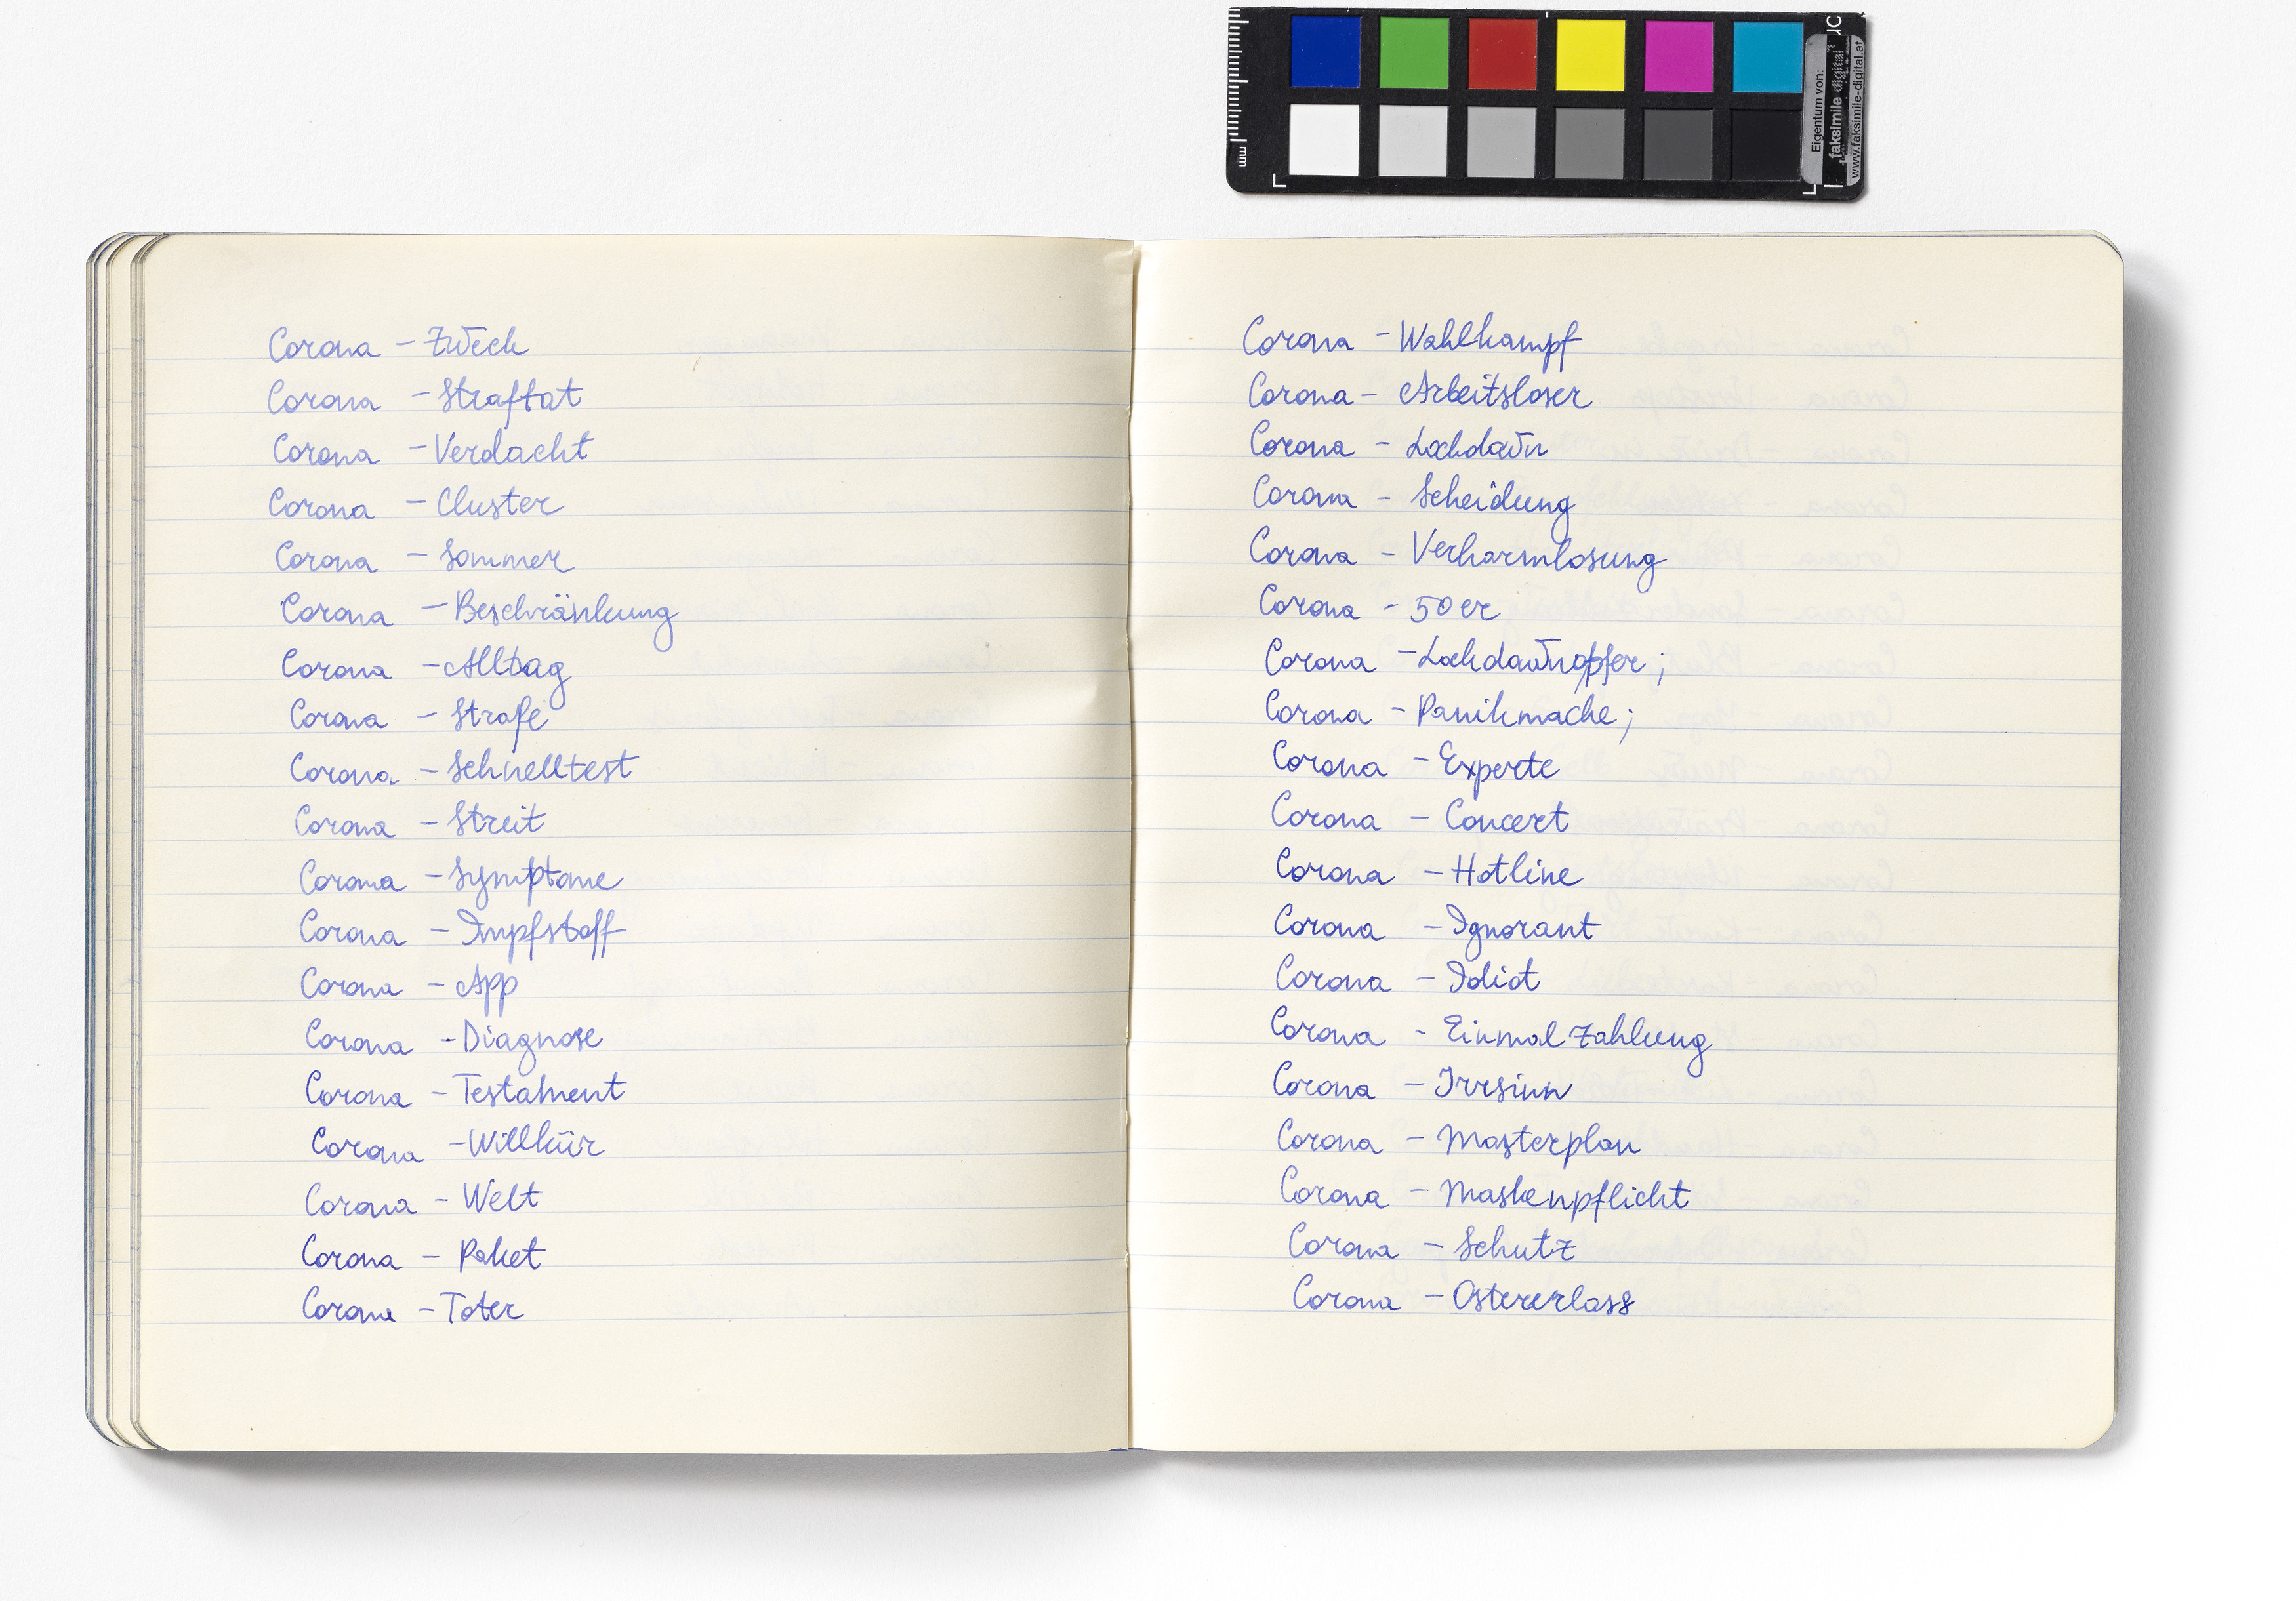 Corona – Zweck
Corona – Straftat
Corona – Verdacht
Corona – Cluster
Corona – Sommer
Corona – Beschränkung
Corona – Alltag
Corona – Strafe
Corona – Schnelltest
Corona – Streit
Corona – Symptome
Corona – Impfstoff
Corona – App
Corona – Diagnose
Corona – Testament
Corona – Willkür
Corona – Welt
Corona – Paket
Corona – Toter
Corona – Wahlkampf
Corona – Arbeitsloser
Corona – Lockdown
Corona – Scheidung
Corona – Verharmlosung
Corona – 50er
Corona – Lockdownopfer;
Corona – Panikmache;
Corona – Experte
Corona – Concert
Corona – Hotline
Corona – Ignorant
Corona – Idiot
Corona – Einmalzahlung
Corona – Irrsinn
Corona – Masterplan
Corona – Maskenpflicht
Corona – Schutz
Corona – Ostererlass
mm
Eigentum von:
faksimile digital
www.faksimile-digital.at